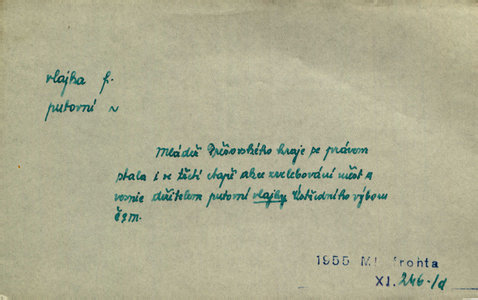 vlajka f.
putovní ~
Mládež Prešovského kraje se právem
stala i ve třetí etapě akce zvelebování měst a
vesnic držitelem putovní vlajky Ústředního výboru
ČSM.
1955 Ml. fronta
XI. 246-/d